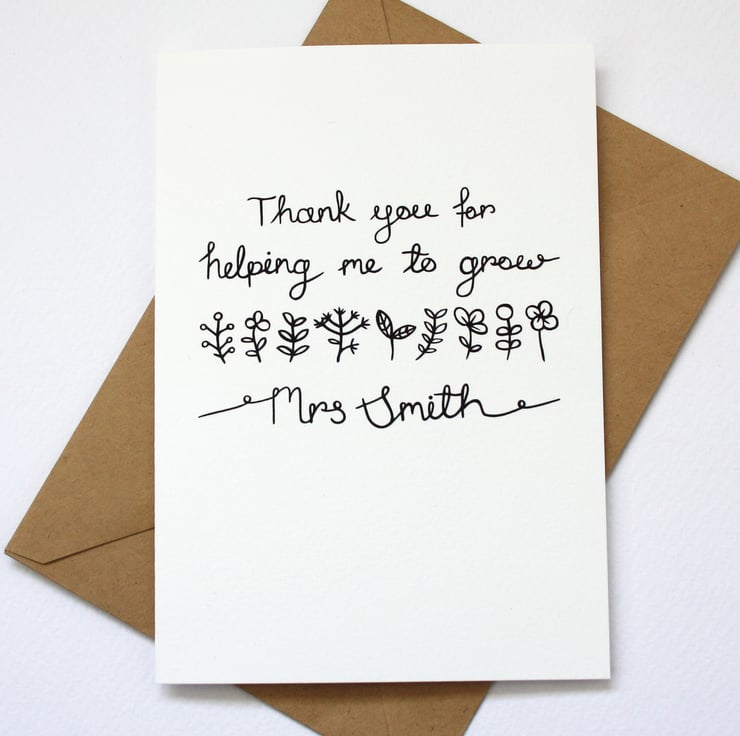 Thank you for
helping me to grow
Mrs Smith